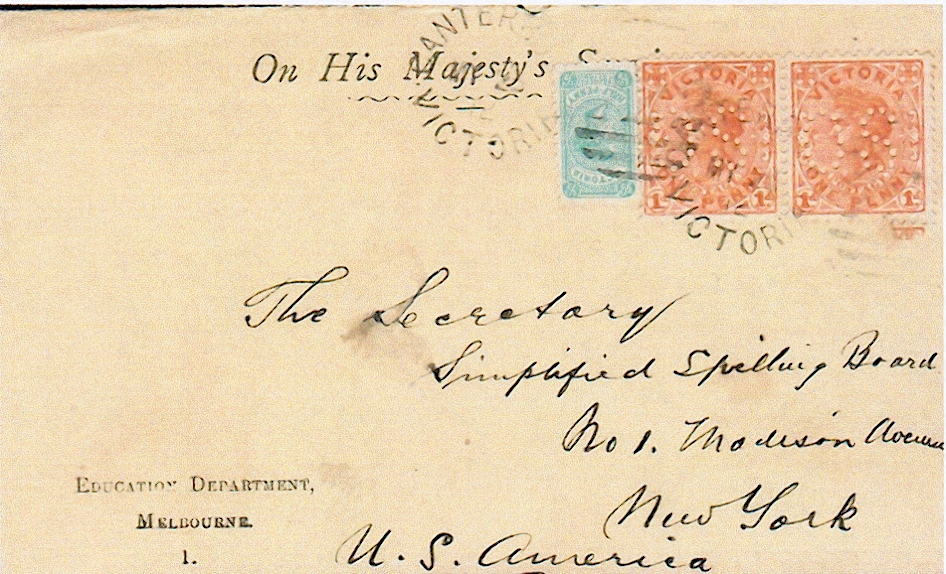 On His Majesty's
VICTORIA
VICTORIA
VICTORIA
ONE PENNY
VICTORIA
ONE PENNY
HALF PENNY
VICTORIA
The Secretary
Simplified Spelling Board
No 1. Madison Avenue
New York
U. S. America
EDUCATION DEPARTMENT,
MELBOURNE.
1.